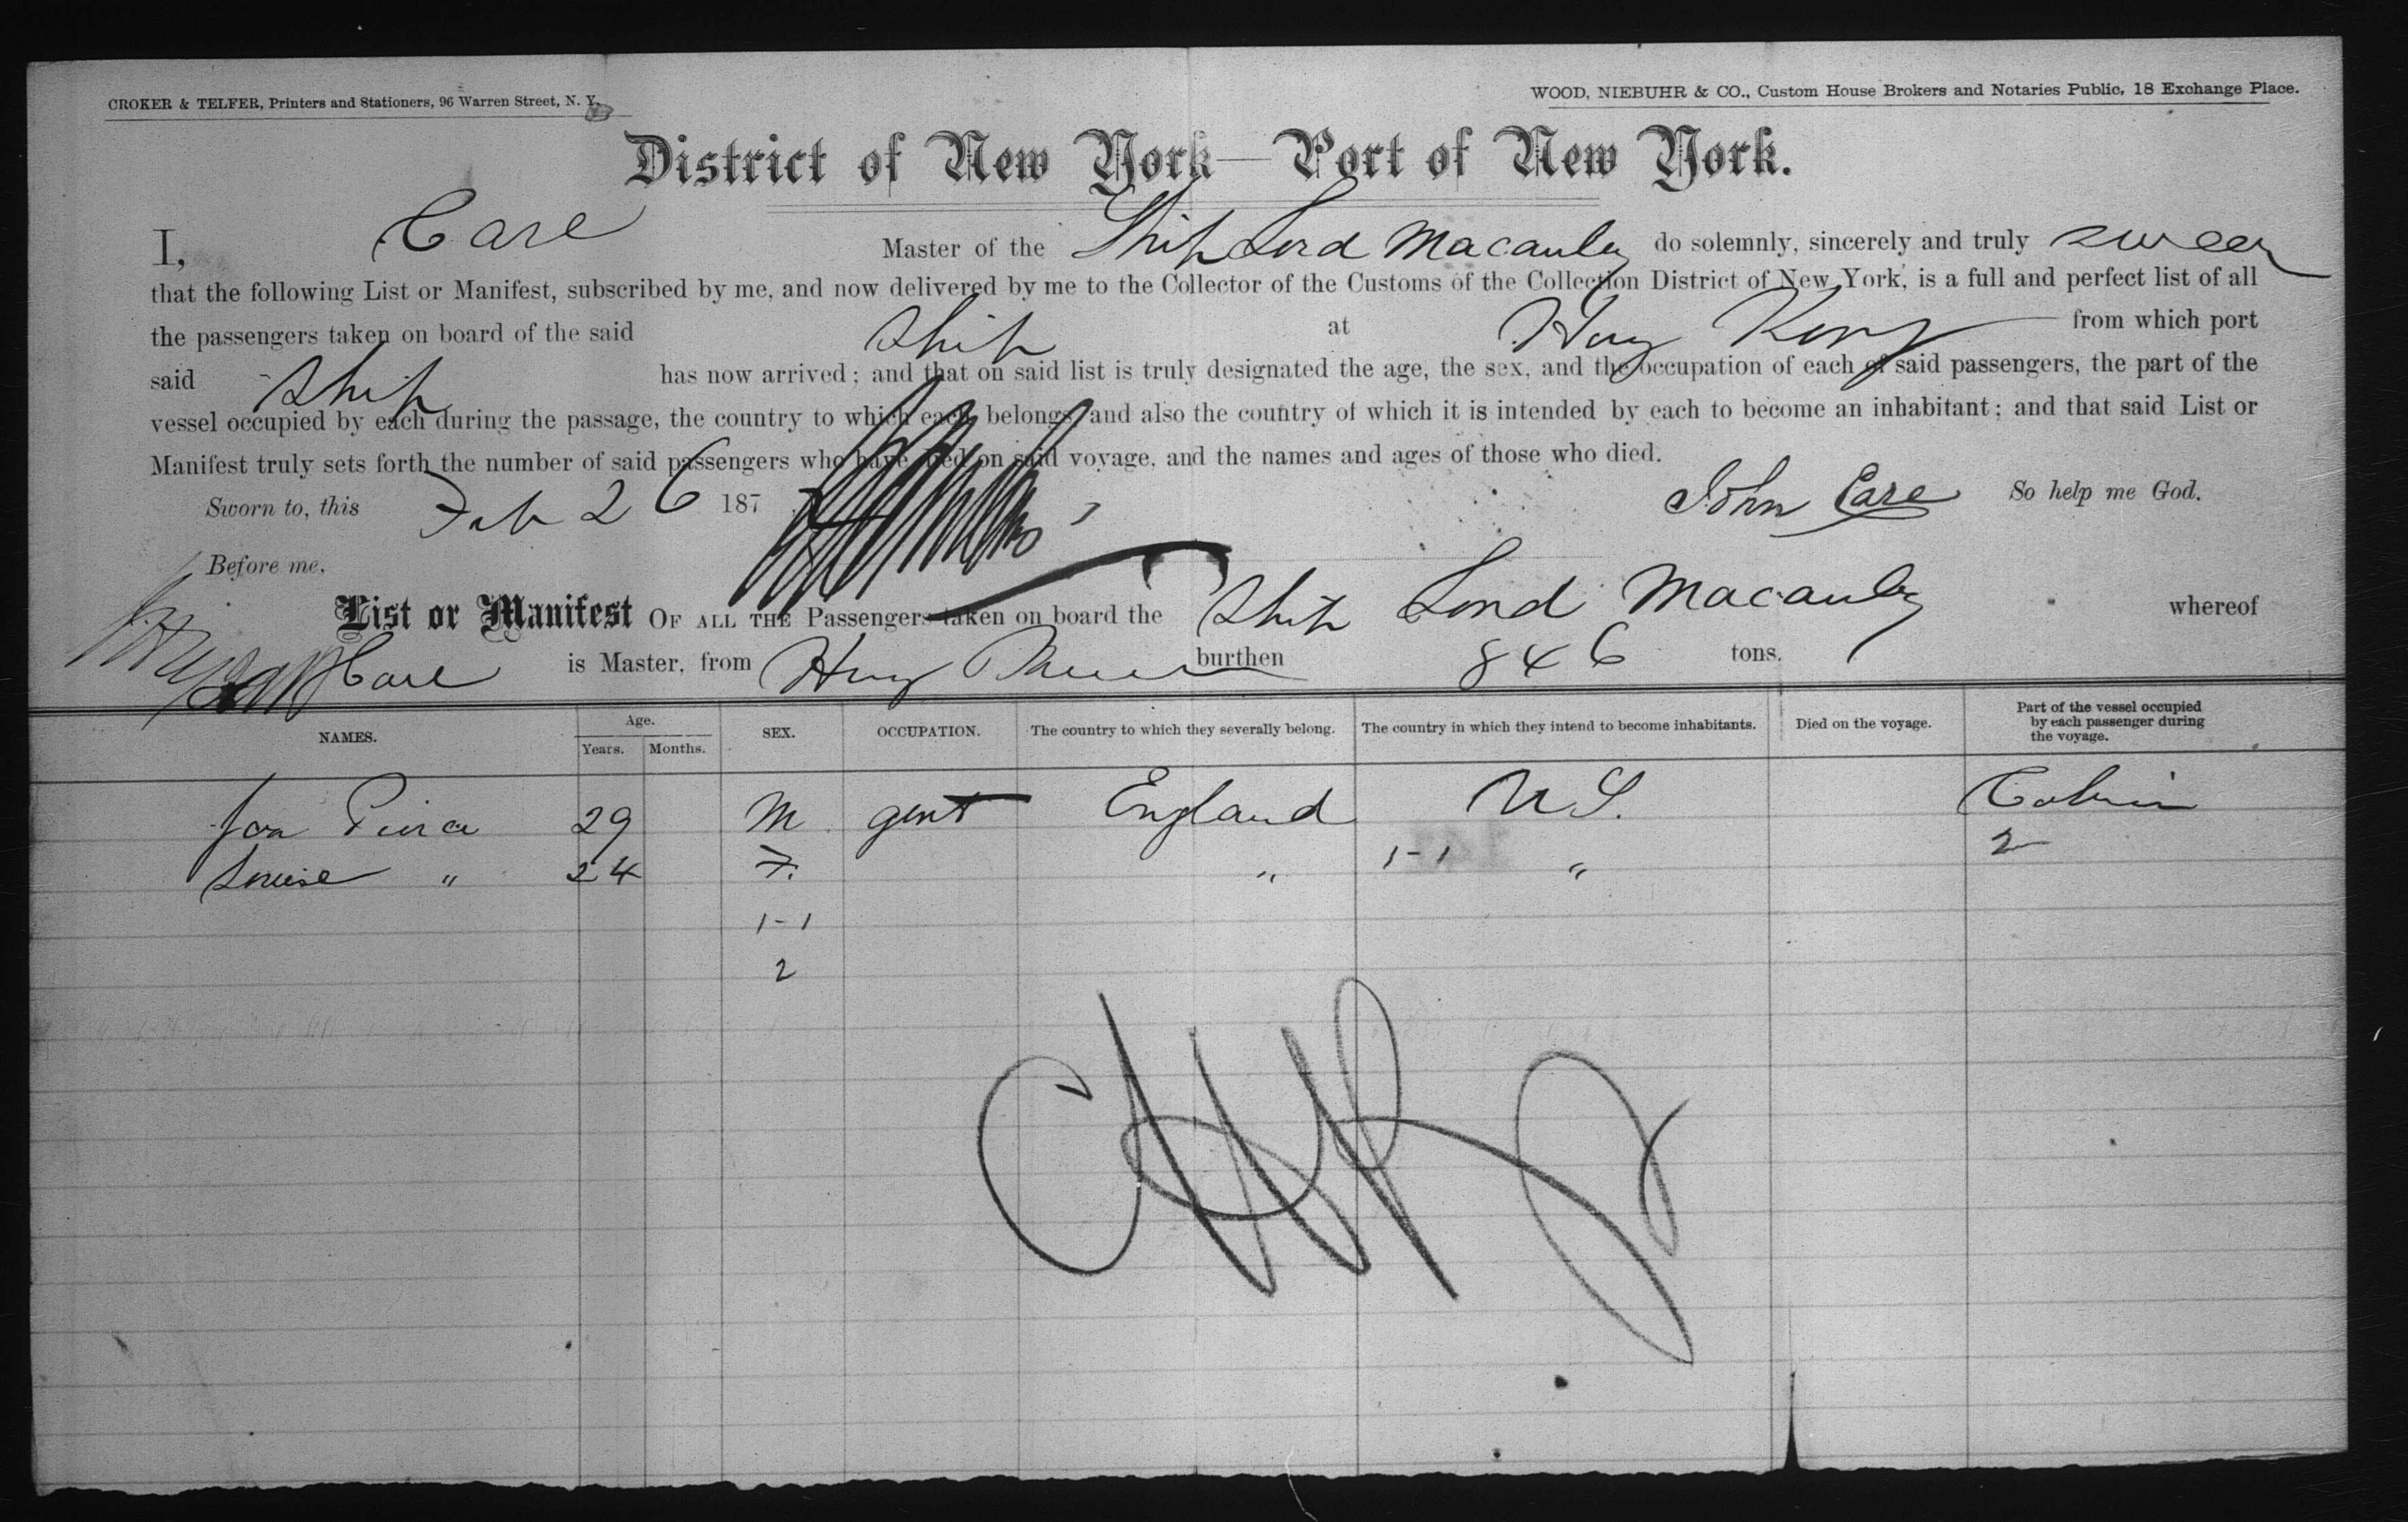 CROKER & TELFER, Printers and Stationers, 96 Warren Street, N. Y.
WOOD, NIEBUHR & CO., Custom House Brokers and Notaries Public, 18 Exchange Place.
District of New York—Port of New York.
I, Care Master of the Ship Lord Macauley do solemnly, sincerely and truly swear
that the following List or Manifest, subscribed by me, and now delivered by me to the Collector of the Customs of the Collection District of New York, is a full and perfect list of all
the passengers taken on board of the said Ship at Hong Kong from which port
said Ship has now arrived; and that on said list is truly designated the age, the sex, and the occupation of each of said passengers, the part of the
vessel occupied by each during the passage, the country to which each belongs, and also the country of which it is intended by each to become an inhabitant; and that said List or
Manifest truly sets forth the number of said passengers who have died on said voyage, and the names and ages of those who died.
Sworn to, this Feb 26 187 John Care So help me God.
Before me,
List or Manifest OF ALL THE Passengers taken on board the Ship Lord Macauley whereof
Care is Master, from burthen 846 tons.
NAMES. Age. Years. Months. SEX. OCCUPATION. The country to which they severally belong. The country in which they intend to become inhabitants. Died on the voyage. Part of the vessel occupied by each passenger during the voyage.
Pierce 29 M gent England U S. Cabin
Louise " 24 F. " 1-1 " 2
1-1
2